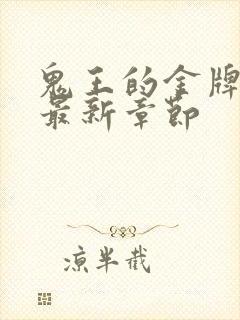 鬼王的金牌
最新章节
凉半截